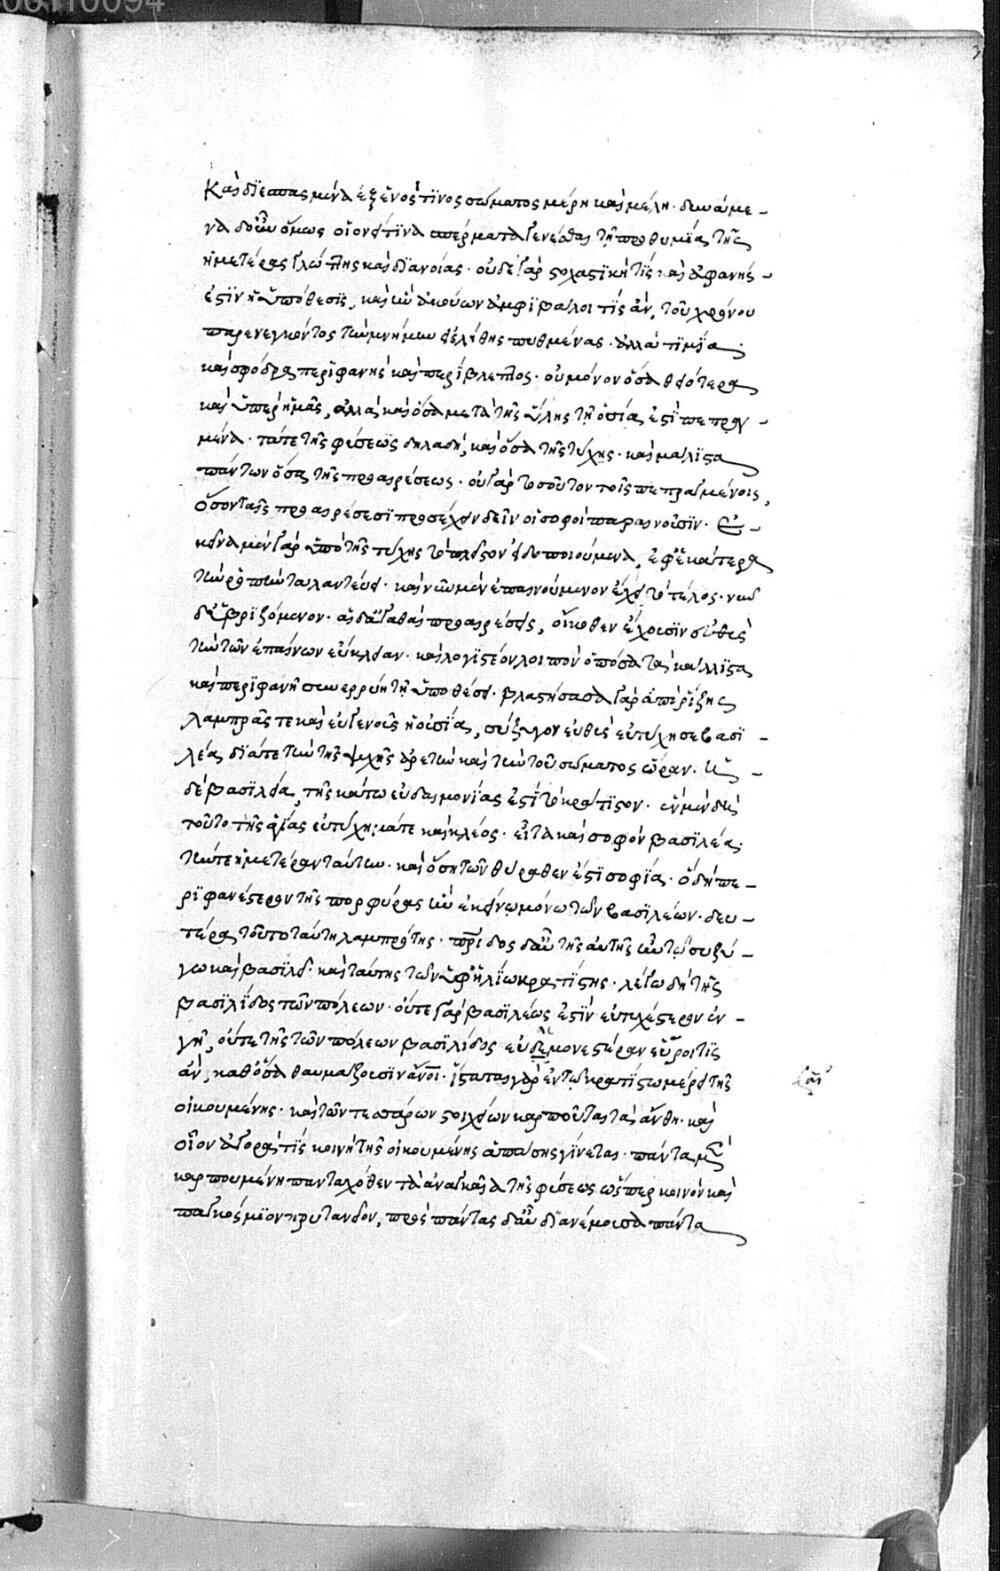 καὶ διεσπασμένα ἐξ ἑνός τινος σώματος μέρη καὶ μέλη. δυνάμε-
να δ' οὖν ὅμως οἱονεί τινα σπέρματα γενέσθαι τῇ προθυμίᾳ τῆς
ἡμετέρας γλώττης καὶ διανοίας. οὐδὲ γὰρ στοχαστική τις καὶ ἀφανής
ἐστιν ἡ ὑπόθεσις, καὶ ἣν ἀκούων ἀμφιβάλοι τις ἂν, τοῦ χρόνου
παρενεγκόντος τὴν μνήμην εἰς λήθης πυθμένας. ἀλλὰ τιμία
καὶ σφόδρα περιφανὴς καὶ περίβλεπτος. οὐ μόνον ὅσα θειότερα
καὶ ὑπὲρ ἡμᾶς, ἀλλὰ καὶ ὅσα μετὰ τῆς ὕλης τῇ οὐσίᾳ ἐστὶ πεπηγ-
μένα. τά τε τῆς φύσεως δηλαδή, καὶ ὅσα τῆς τύχης. καὶ μάλιστα
πάντων ὅσα τῆς προαιρέσεως. οὐ γὰρ τοσοῦτον τοῖς πεπραγμένοις,
ὅσον ταῖς προαιρέσεσι προσέχειν δεῖν οἱ σοφοὶ παραινοῦσιν. ἐ-
κεῖνα μὲν γὰρ ὑπὸ τῆς τύχης τὸ πλεῖστον εἰδοποιούμενα, ἐφ' ἑκάτερα
τὴν ῥοπὴν ταλαντεύει. καὶ νῦν μὲν ἐπαινούμενον ἔχει τὸ τέλος. νῦν
δὲ ὑβριζόμενον. αἱ δ' ἀγαθαὶ προαιρέσεις, οἴκοθεν ἔχουσιν εὐθὺς
τὴν τῶν ἐπαίνων εὔκλειαν. καὶ λογιστέον λοιπὸν ὁπόσα τὰ κάλλιστα
καὶ περιφανῆ συνερρύη τῇ ὑποθέσει. βλαστήσασα γὰρ ἀπὸ ῥίζης
λαμπρᾶς τε καὶ εὐγενοῦς ἡ οὐσία, σύζυγον εὐθὺς εὐτύχησε βασι-
λέα, διά τε τὴν τῆς ψυχῆς ἀρετὴν καὶ τὴν τοῦ σώματος ὥραν.
δὲ βασιλεία, τῆς κάτω εὐδαιμονίας ἐστὶ τὸ κράτιστον. ἓν μὲν δὴ
τοῦτο τῆς ἁγίας εὐτύχημά τε καὶ κλέος. εἶτα καὶ σοφὸν βασιλέα.
τήν τε ἡμετέραν ταύτην. καὶ ὅση τῶν θύραθέν ἐστι σοφία. ὃ δὴ πε-
ριφανέστερον τῆς πορφύρας ἦν ἐκείνῳ μόνῳ τῶν βασιλέων. δευ-
τέρα τοῦτο ταύτῃ λαμπρότης. πατρίδος δ' αὖ τῆς αὐτῆς αὐτῷ συζύ-
γῳ καὶ βασιλεῖ. καὶ ταύτης τῶν ὑφ' ἡλίῳ κρατίστης. λέγω δὴ τῆς
βασιλίδος τῶν πόλεων. οὔτε γὰρ βασιλέως ἐστὶν εὐτυχέστερον ἐν
γῇ, οὔτε τῆς τῶν πόλεων βασιλίδος εὐδαιμονεστέραν εὕροι τις
ἄν, καθ' ὅσα θαυμάζουσιν ἄνθρωποι. ἵσταται γὰρ ἐν τῷ κρατίστῳ μέρει τῆς
οἰκουμένης. καὶ τῶν τεσσάρων στοιχείων καρποῦται τὰ ἄνθη. καὶ
οἷον ἀγορά τις κοινὴ τῆς οἰκουμένης ἁπάσης γίνεται. πάντα μὲν
καρπουμένη πανταχόθεν τὰ ἀναγκαῖα τῆς φύσεως ὥσπερ κοινὸν καὶ
παγκόσμιον πρυτανεῖον, πρὸς πάντας δ' αὖ διανέμουσα πάντα